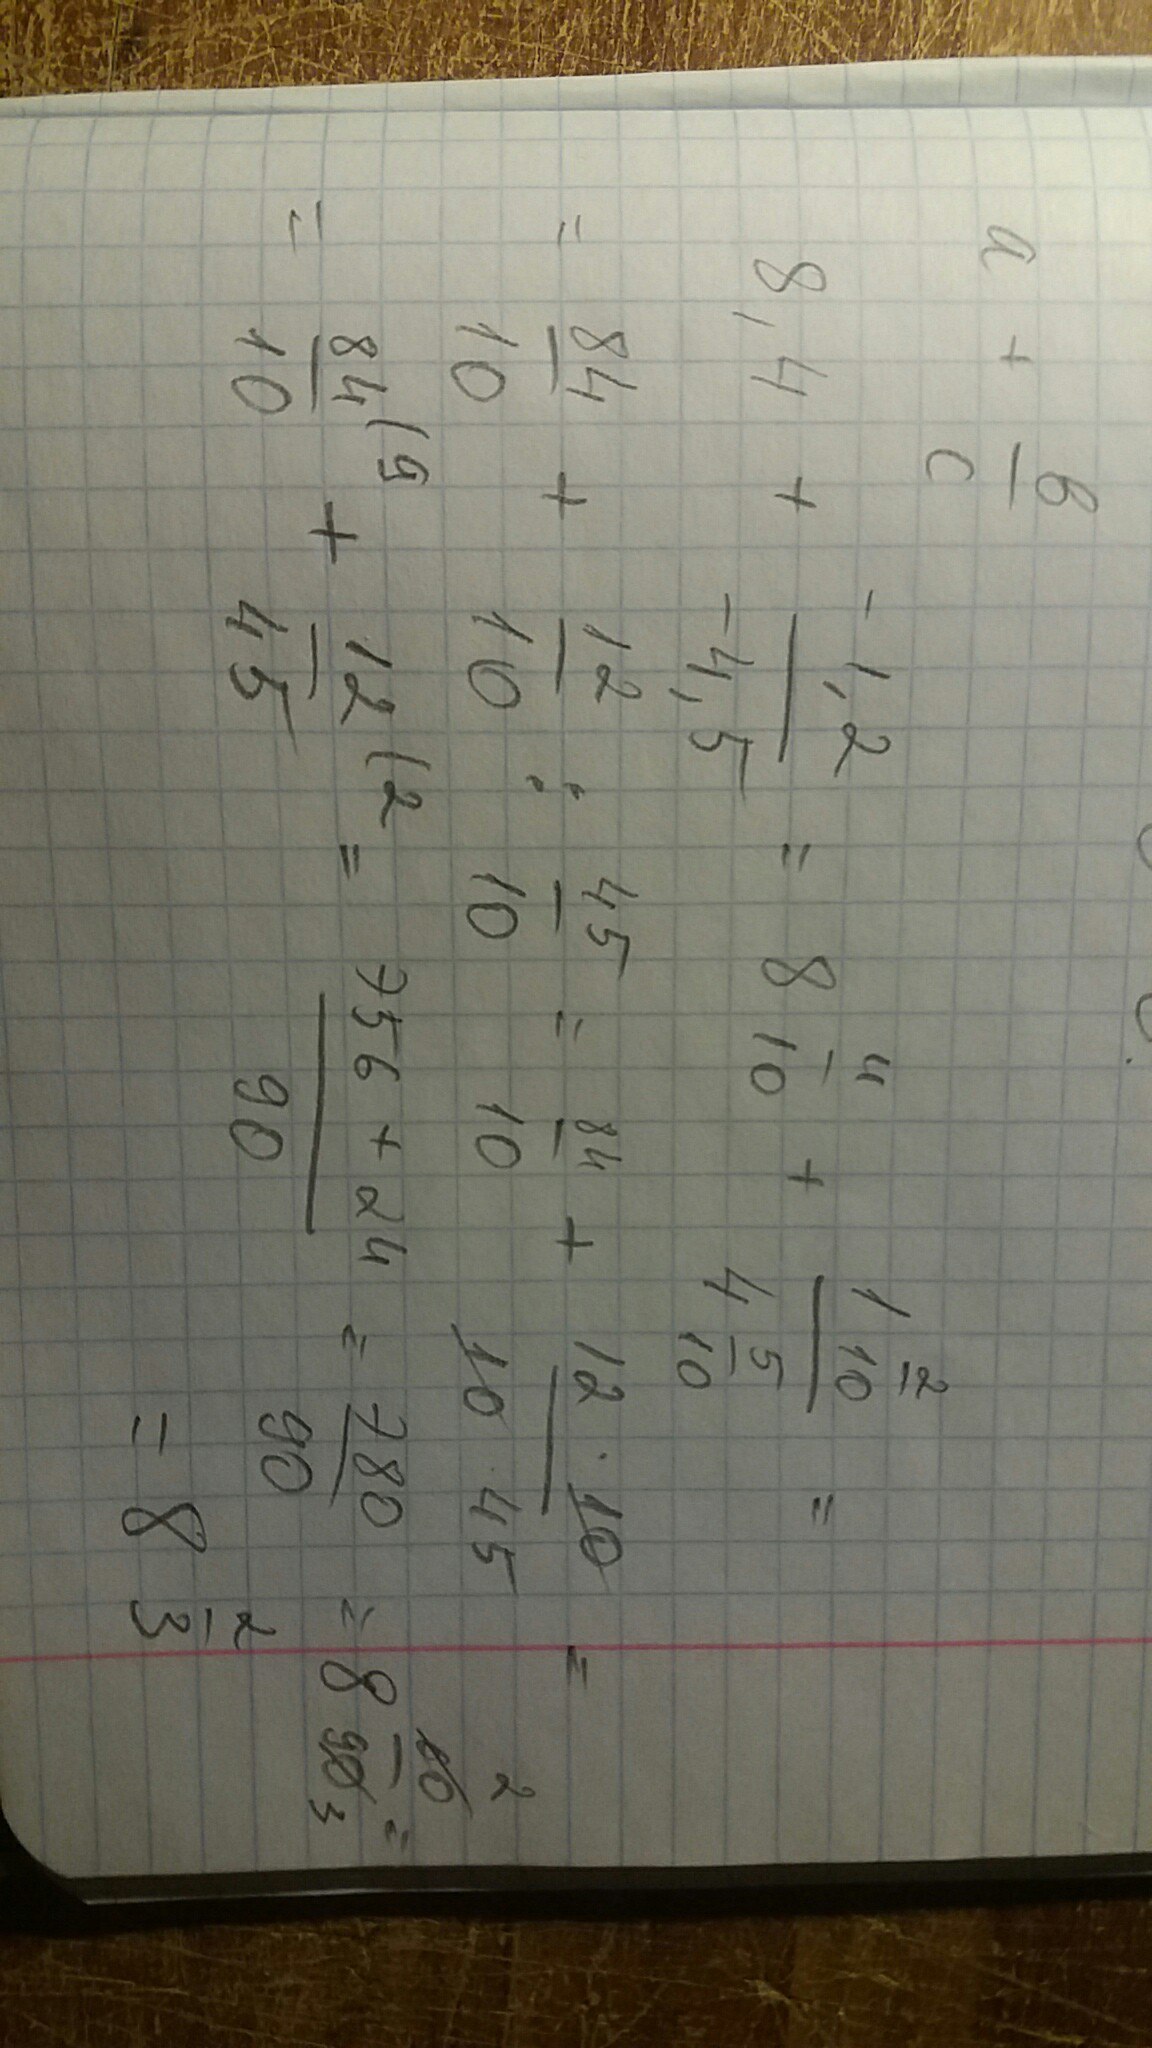 a + в/c
8,4 + -1,2/-4,5 = 8 4/10 + 1 2/10 / 4 5/10 =
= 84/10 + 12/10 : 45/10 = 84/10 + 12 · 10/10 · 45 =
= 84/10 (9 + 12/45 (2 = 756 + 24/90 = 780/90 = 8 60/90 2/3 =
= 8 2/3